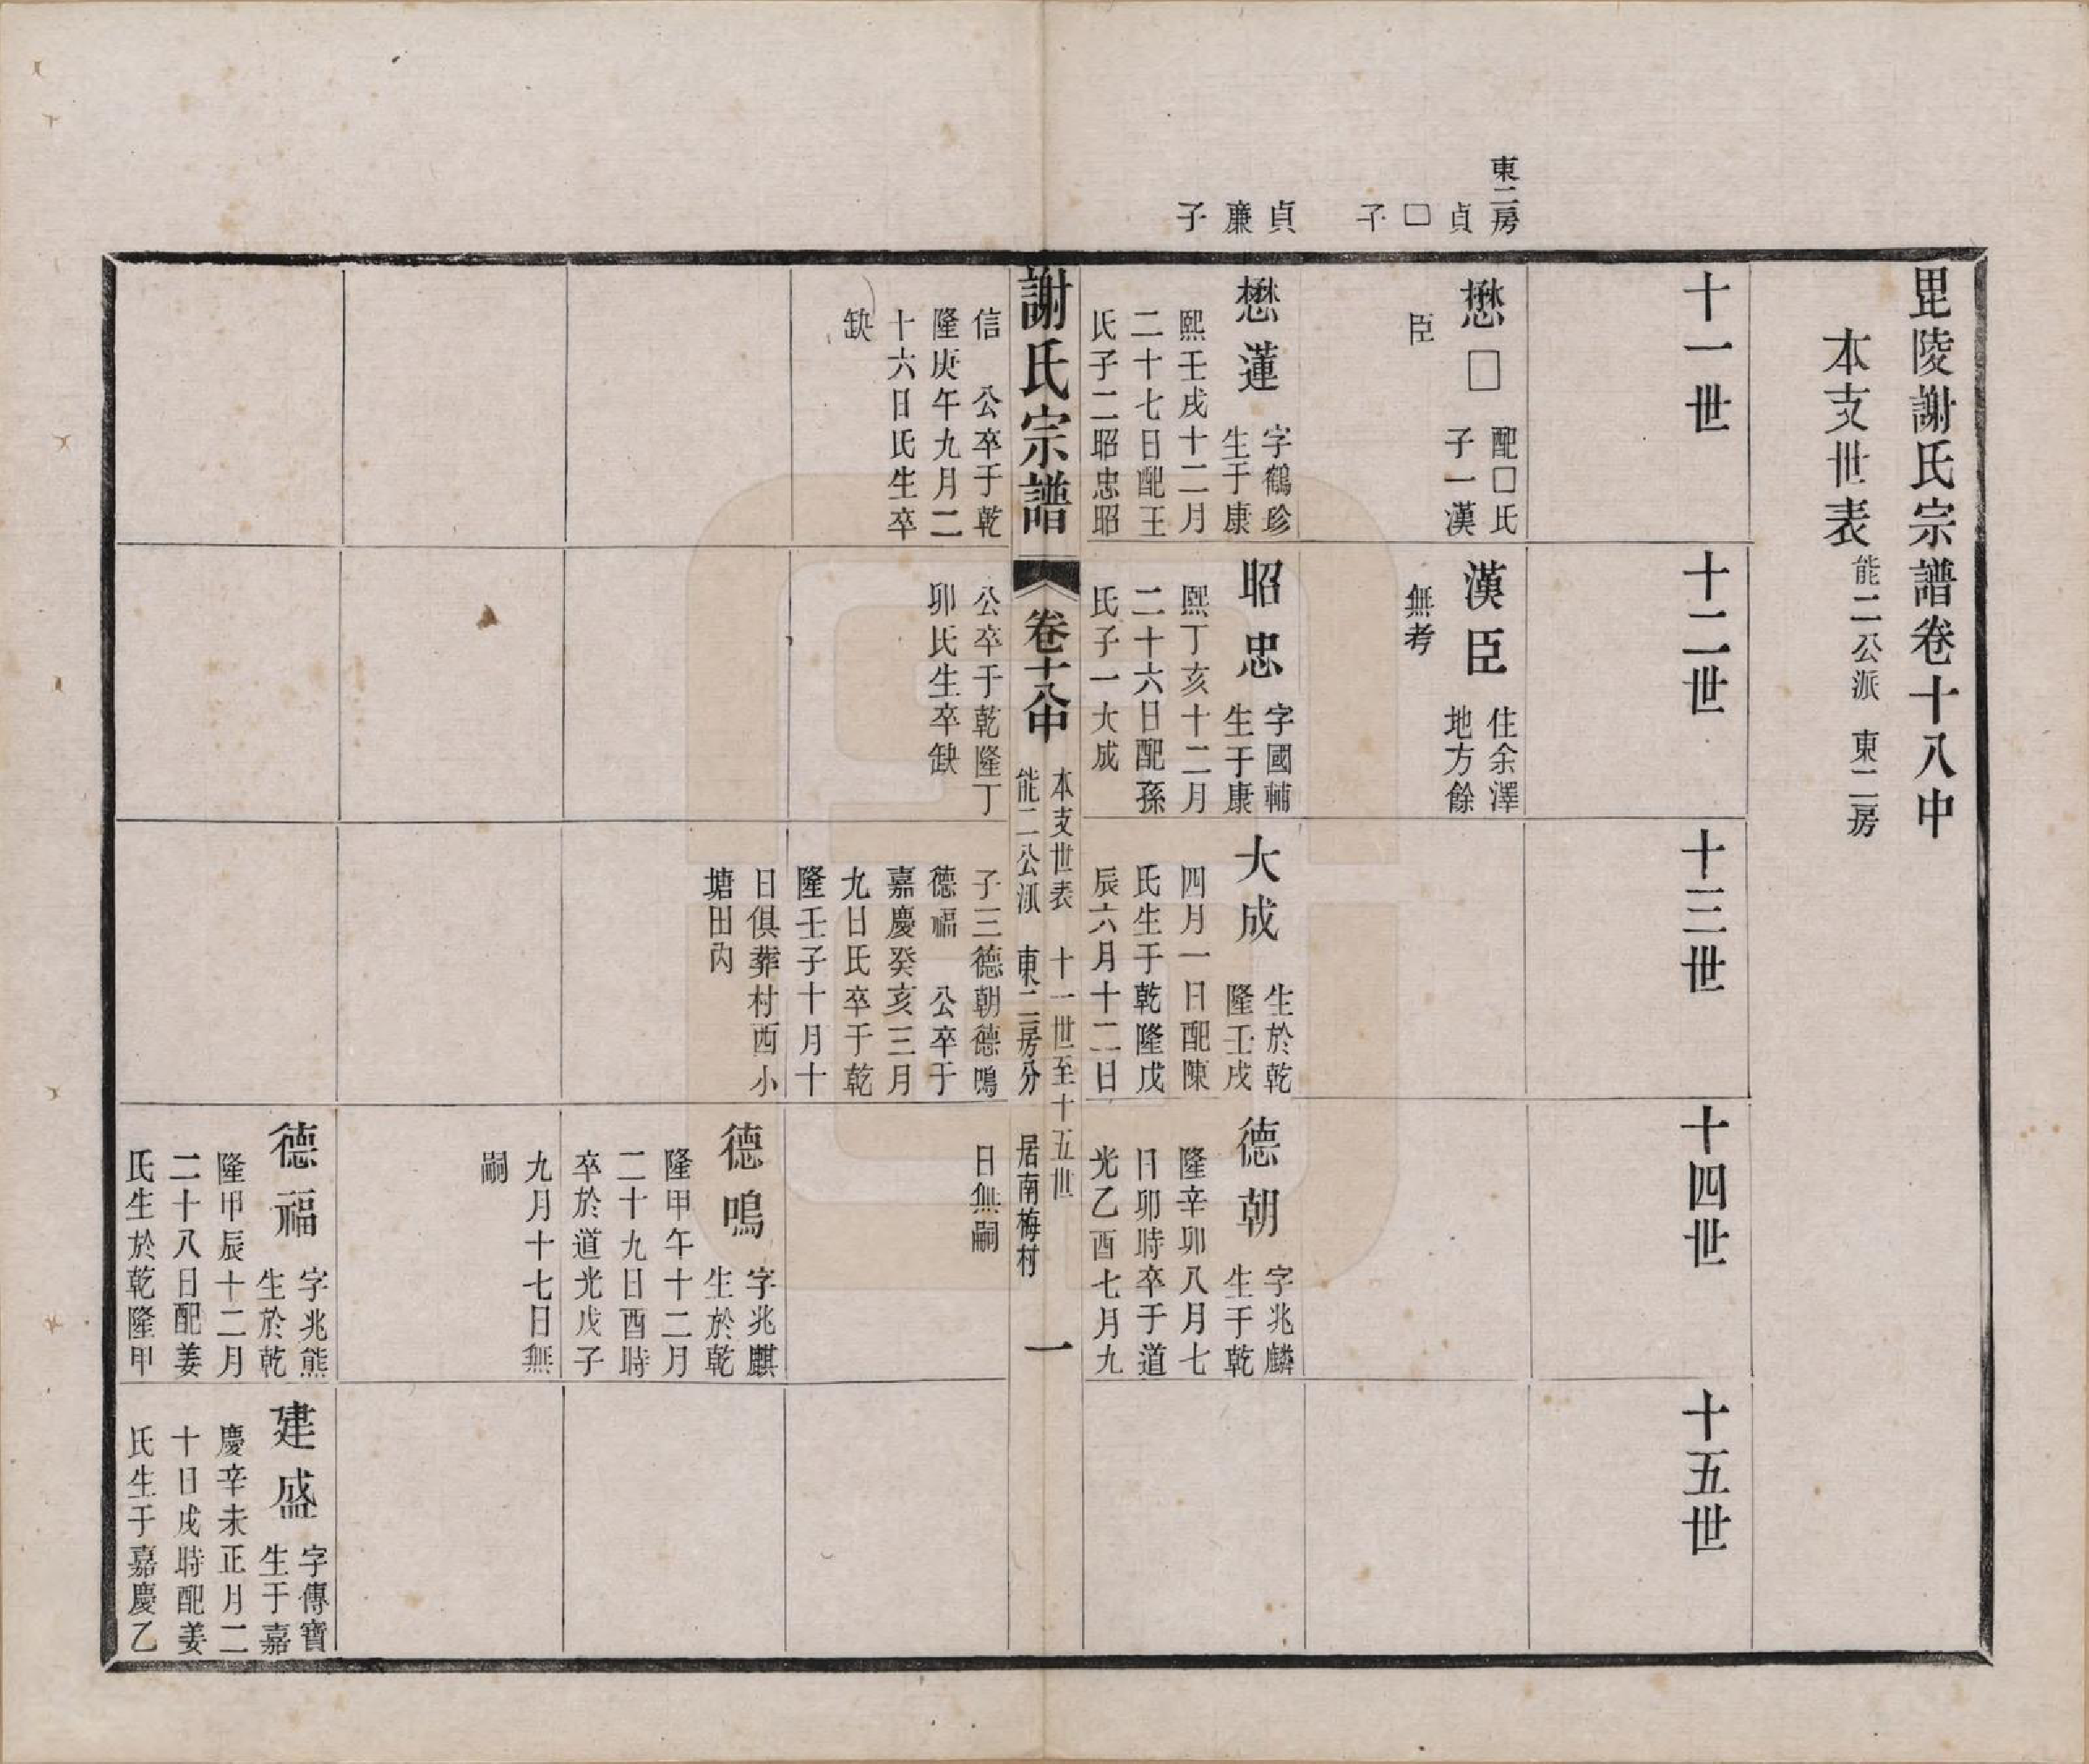 毘陵謝氏宗譜卷十八中
本支世表 能二公派 東二房
十一世
十二世
十三世
十四世
十五世
東二房
貞□子
懋□ 配□氏
子一漢
臣
漢臣 住余澤
地方餘
無考
貞廉子
懋蓮 字鶴珍
生于康
熙壬戌十二月
二十七日配王
氏子二昭忠昭
昭忠 字國輔
生于康
熙丁亥十二月
二十六日配孫
氏子一大成
大成 生於乾
隆壬戌
四月一日配陳
氏生于乾隆戊
辰六月十二日
德朝 字兆麟
生于乾
隆辛卯八月七
日卯時卒于道
光乙酉七月九
謝氏宗譜 卷十八中
本支世表 十一世至十五世
能二公派 東二房分 居南梅村
一
信 公卒于乾
隆庚午九月二
十六日氏生卒
缺
公卒于乾隆丁
卯氏生卒缺
子三德朝德鳴
德福 公卒于
嘉慶癸亥三月
九日氏卒于乾
隆壬子十月十
日俱葬村西小
塘田內
日無嗣
德鳴 字兆麒
生於乾
隆甲午十二月
二十九日酉時
卒於道光戊子
九月十七日無
嗣
德福 字兆熊
生於乾
隆甲辰十二月
二十八日配姜
氏生於乾隆甲
建盛 字傳寶
生于嘉
慶辛未正月二
十日戌時配姜
氏生于嘉慶乙